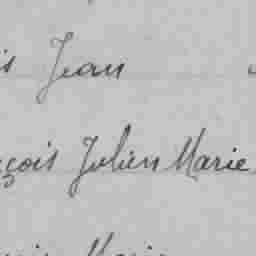 is Jean
çois Julien Marie
Marie